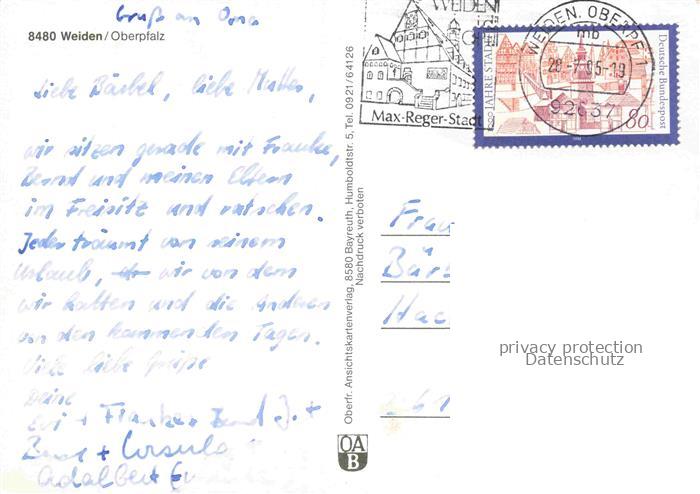 Gruß an Oma
8480 Weiden/Oberpfalz
Liebe Bärbel, liebe Mutter,
wir sitzen gerade mit Frauke,
Bernd und meinen Eltern
im Freisitz und ratschen.
Jeder träumt von seinem
Urlaub, wir von dem
wir hatten und die anderen
von den kommenden Tagen.
Viele liebe Grüße
Deine
Evi + Frauke Bernd J. +
+ Ursula +
Adalbert
Oberfr. Ansichtskartenverlag, 8580 Bayreuth, Humboldtstr. 5, Tel. 0921/64126
Nachdruck verboten
OA
B
WEIDEN
Max-Reger-Stadt
WEIDEN, OBERPF 1
mb
92637
Deutsche Bundespost
80
Frau
Bär
Hae
privacy protection
Datenschutz